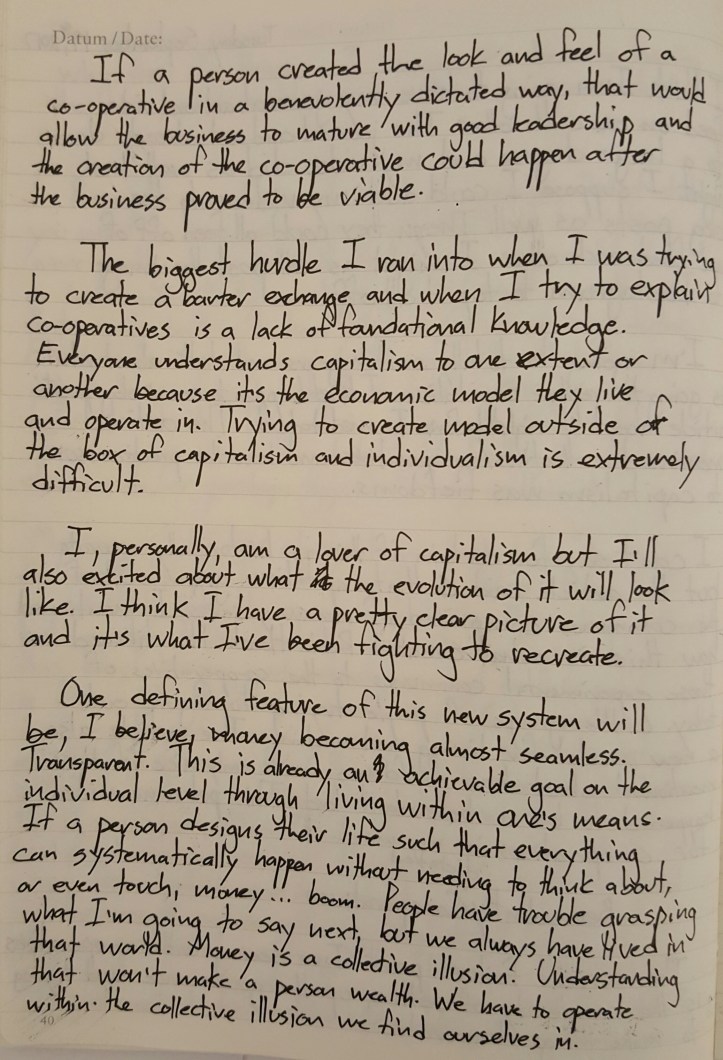 Datum / Date:
If a person created the look and feel of a
co-operative in a benevolently dictated way, that would
allow the business to mature with good leadership and
the creation of the co-operative could happen after
the business proved to be viable.
The biggest hurdle I ran into when I was trying
to create a barter exchange and when I try to explain
co-operatives is a lack of foundational knowledge.
Everyone understands capitalism to one extent or
another because its the economic model they live
and operate in. Trying to create model outside of
the box of capitalism and individualism is extremely
difficult.
I, personally, am a lover of capitalism but I'll
also excited about what the evolution of it will look
like. I think I have a pretty clear picture of it
and it's what I've been fighting to recreate.
One defining feature of this new system will
be, I believe, money becoming almost seamless.
Transparent. This is already an achievable goal on the
individual level through living within one's means.
If a person designs their life such that everything
can systematically happen without needing to think about,
or even touch, money... boom. People have trouble grasping
what I'm going to say next, but we always have lived in
that world. Money is a collective illusion. Understanding
that won't make a person wealth. We have to operate
within the collective illusion we find ourselves in.
40